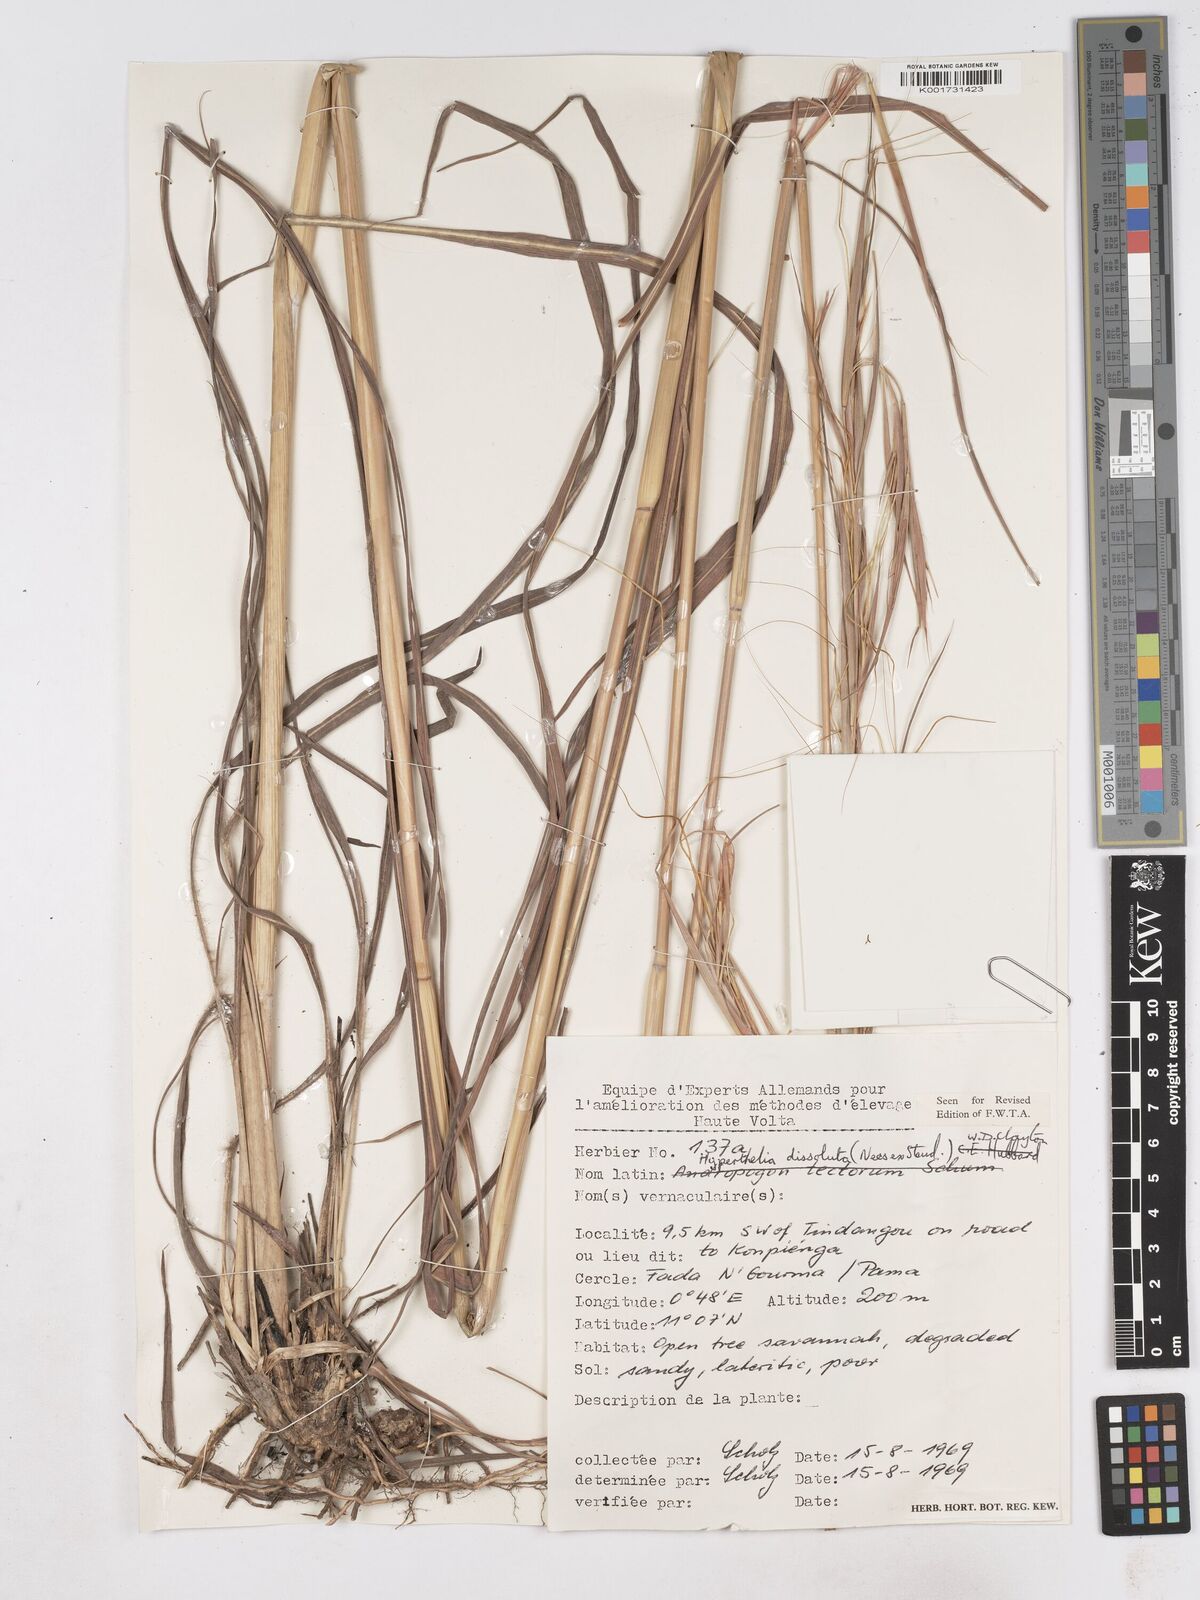 ROYAL BOTANIC GARDENS KEW
K001731423
Equipe d'Experts Allemands pour
l'amélioration des méthodes d'élevage
Haute Volta
Seen for Revised
Edition of F.W.T.A.
Herbier No. 137a
Hyperthelia dissoluta (Nees ex Steud.) C.E. Hubbard W.D. Clayton
Nom latin: Andropogon tectorum Schum
Nom(s) vernaculaire(s):
Localité: 9,5 km SW of Tindangou on road
ou lieu dit: to Konpiénga
Cercle: Fada N'Gourma / Pama
Longitude: 0°48'E Altitude: 200 m
Latitude: 11°07'N
Habitat: Open tree savannah, degraded
Sol: sandy, lateritic, poor
Description de la plante:
collectée par: Scholz Date: 15-8-1969
determinée par: Scholz Date: 15-8-1969
verifiée par: Date:
HERB. HORT. BOT. REG. KEW.
inches
Density
Don Williams
centimeters
M001006
Royal Botanic Gardens
Kew
0 1 2 3 4 5 6 7 8 9 10
cm
copyright reserved